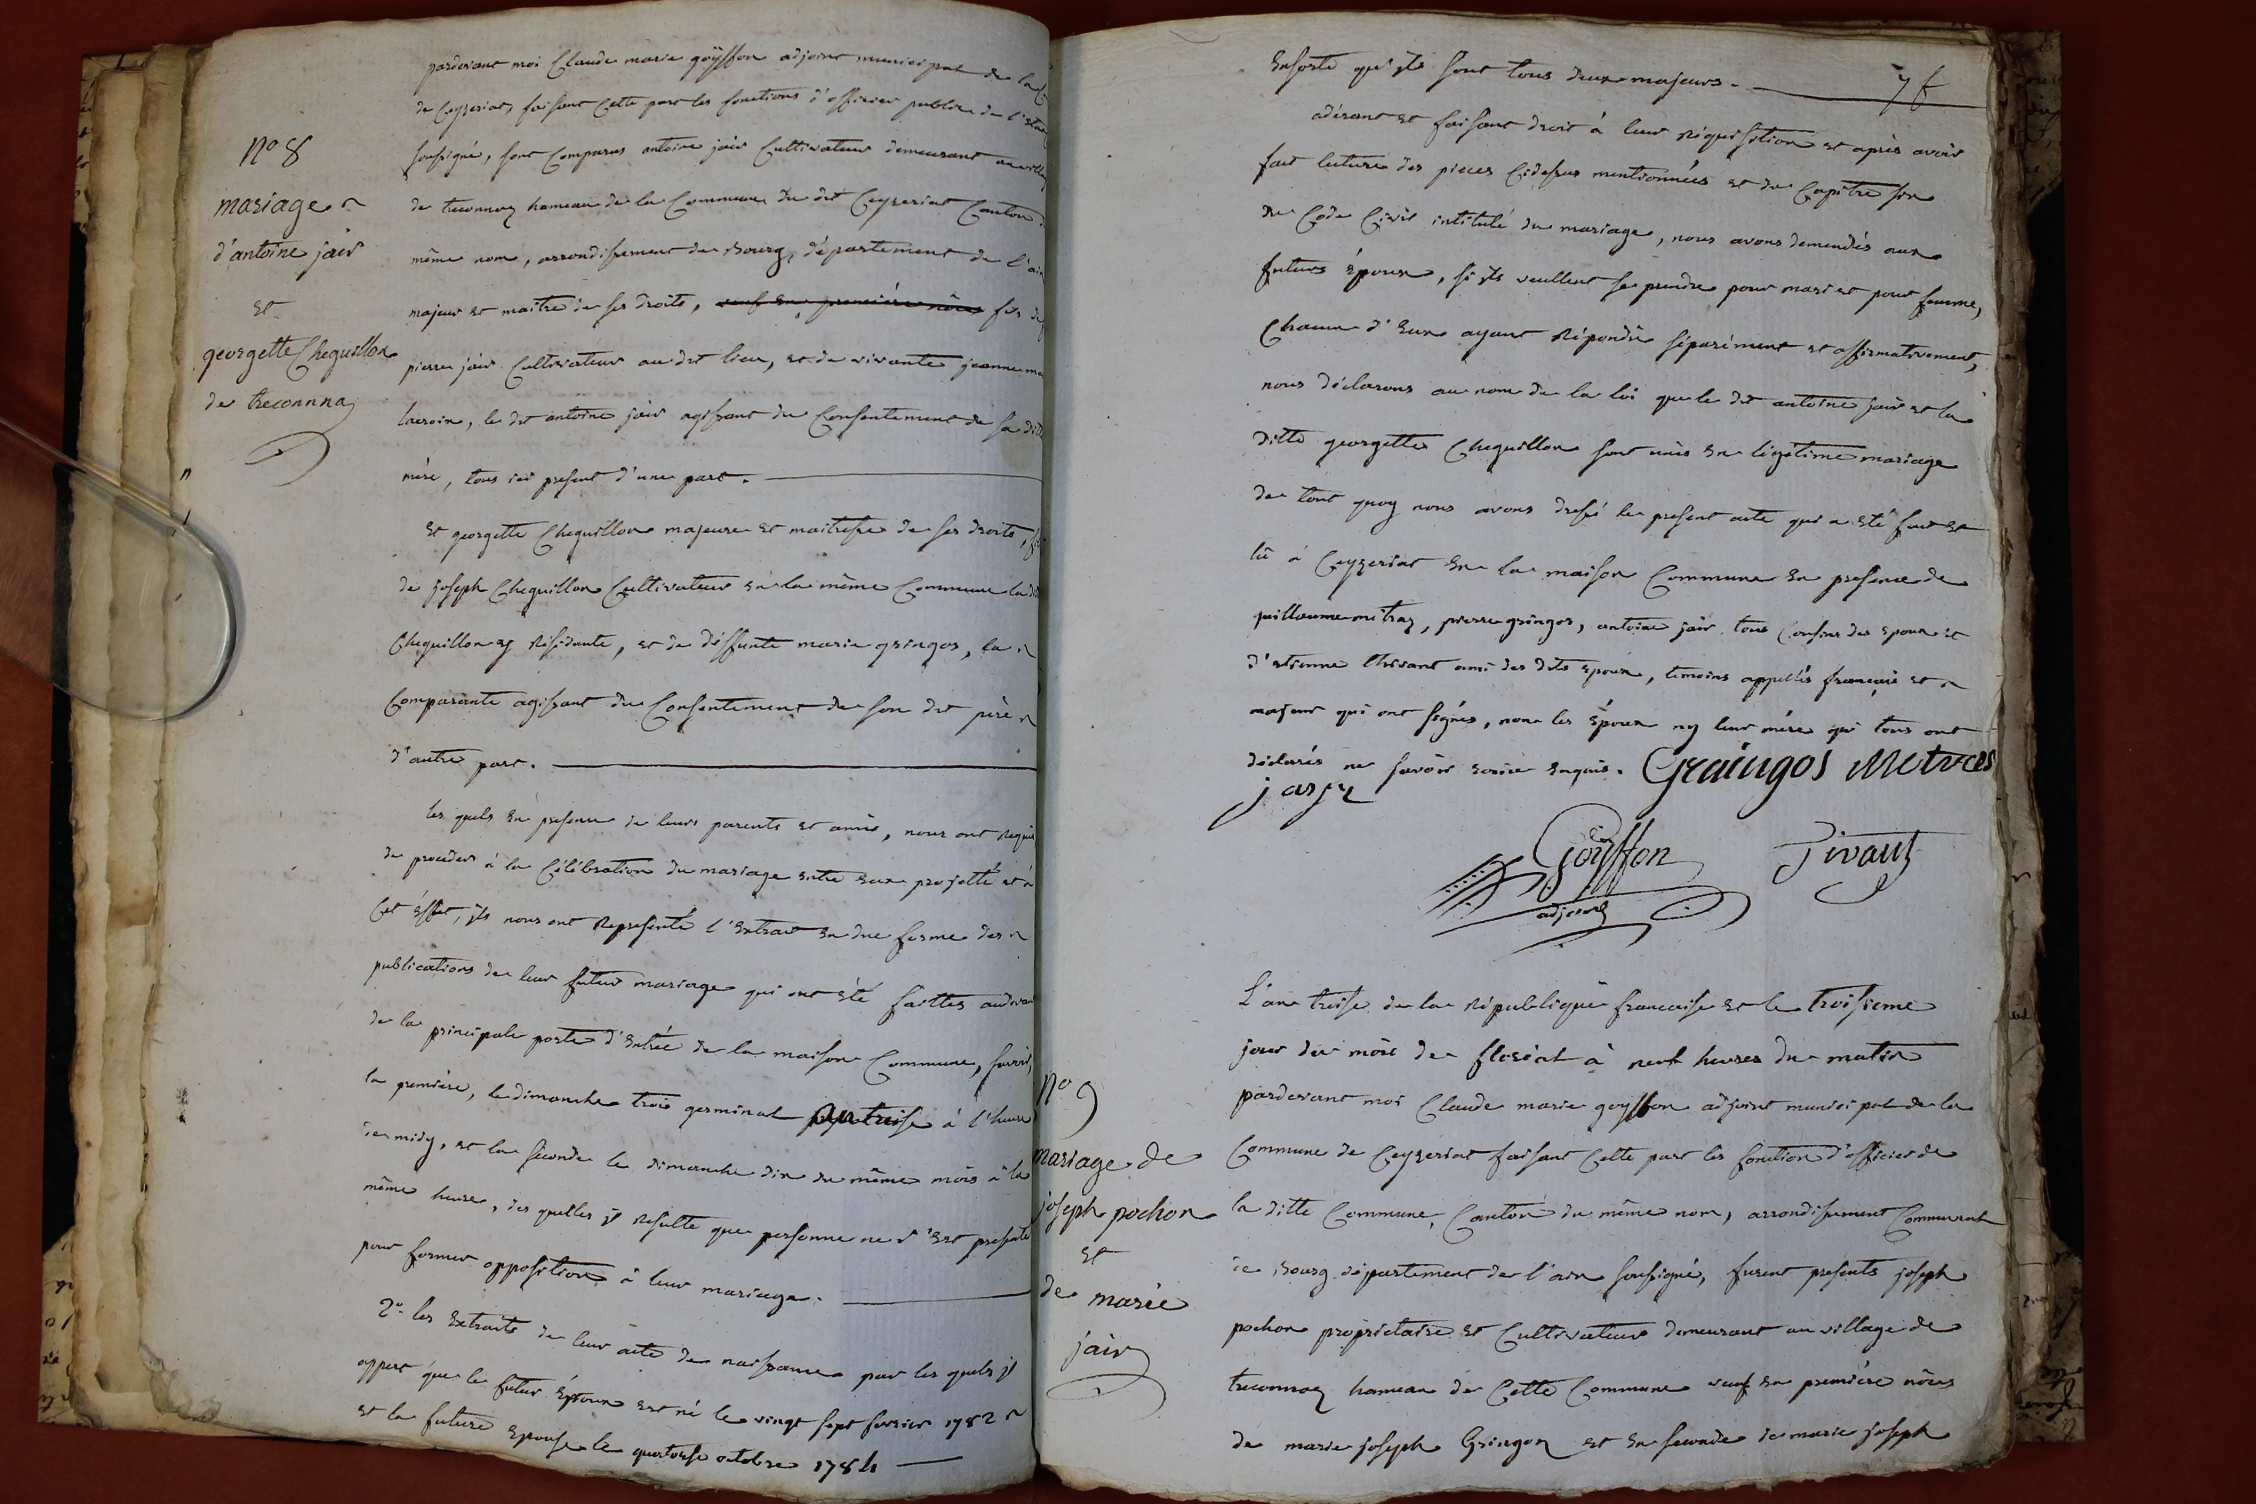 pardevant moi Claude marie goÿffon adjoint municipal de la
de Ceyzeriat, faisant Cette part les fonctions d'officier public de l'etat
soussigné, sont Comparus antoine jair Cultivateur demeurant au village
de treconnaz hameau de la Commune du dit Ceyzeriat Canton
même nom, arrondissement de Bourg, département de l'ain
majeur et maitre de ses droits, veuf en première nôces fils de
pierre jair Cultivateur au dit lieu, et de vivante jeanne
lacroix, le dit antoine jair agissant du Consentement de sa ditte
mère, tous ici present d'une part.
Et georgette Cheguillon majeure et maitresse de ses droits,
de joseph Cheguillon Cultivateur en la même Commune la
Cheguillon y Residante, et de deffunte marie gringoz, la
Comparante agissant du Consentement de son dit père
d'autre part.
les quels en presence de leurs parents et amis, nous ont requis
de proceder à la Célébration du mariage entre eux projetté et à
Cet éffet, ils nous ont Representé l'Extrait en due forme des
publications de leur futur mariage qui ont été faittes audevant
de la principale porte d'Entrée de la maison Commune, savoir,
la première, le dimanche trois germinal an treise à l'heure
de midy, et la seconde le dimanche dix du même mois à la
même heure, des quelles il resulte que personne ne s'est presenté
pour former opposition à leur mariage.
2° les Extraits de leur acte de naissance par les quels il
appert que le futur Époux est né le vingt sept fevrier 1782
et la future Epouse le quatorse octobre 1784
N° 8
mariage
d'antoine jair
et
georgette Cheguillon
de treconnaz
Ensorte qu'ils sont tous deux majeurs.
adérant et faisant droit à leur réquisition et après avoir
fait lecture des pieces Cidessus mentionnées et du Capitre six
du Code Civil intitulé du mariage, nous avons demendés aux
futurs époux, si ils veullent se prendre pour mari et pour femme,
Chacun d'Eux ayant Répondu séparément et affirmativement,
nous déclarons au nom de la loi que le dit antoine jair et la
ditte georgette Cheguillon sont unis en légitime mariage
de tout quoy nous avons dressé le present acte qui a été fait et
lû à Ceyzeriat en la maison Commune en presence de
guillaume mitraz, pierre gringoz, antoine jair tous Cousins des epoux et
d'etienne thivant ami des dits epoux, temoins appellés français et
majeur qui ont signés, non les Époux ny leur mère qui tous ont
déclarés ne savoir écrire enquis. Graingos Metrces
Goÿffon
adjoint
L'an treise de la République francaise et le troisieme
jour du mois de floréal à neuf heures du matin
pardevant moi Claude marie goyffon adjoint municipal de la
Commune de Ceyzeriat faisant Cette part les fonction d'officier de
la ditte Commune, Canton du même nom, arrondissement Communal
de Bourg département de l'ain soussigné, furent presents joseph
pochon propriétaire et Cultivateur demeurant au village de
treconnaz hameau de Cette Commune veuf en première nôces
de marie joseph Gringoz et en seconde de marie joseph
N° 9
mariage de
joseph pochon
et
de marie
jair